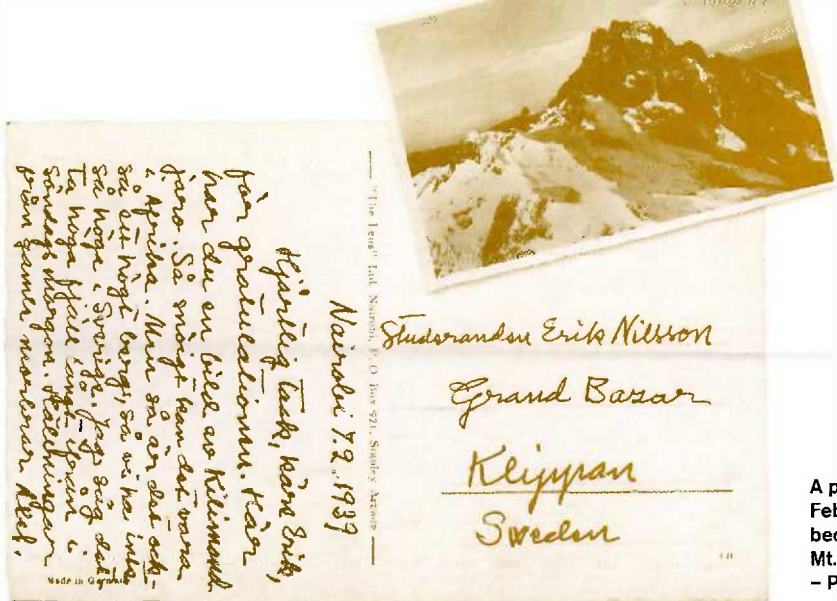 Nairobi 7.2.1939
Hjärtlig tack, käre Erik,
för gratulationen. Här
har du en bild av Kilimand
jaro. Så snöigt kan det vara
i Afrika. Men så är det ock-
så ett högt berg, så vi ha inte
så höga i Sverige. Jag såg det
höga fjäll långt ifrån i
söndags morgon. Hälsningar
från gamle morbror
"The Lens" Ltd. Nairobi, P. O. Box 921, Stanley
Made in
Studeranden Erik Nilsson
Grand Bazar
Klippan
Sweden
A p
Feb
bec
Mt.
– P